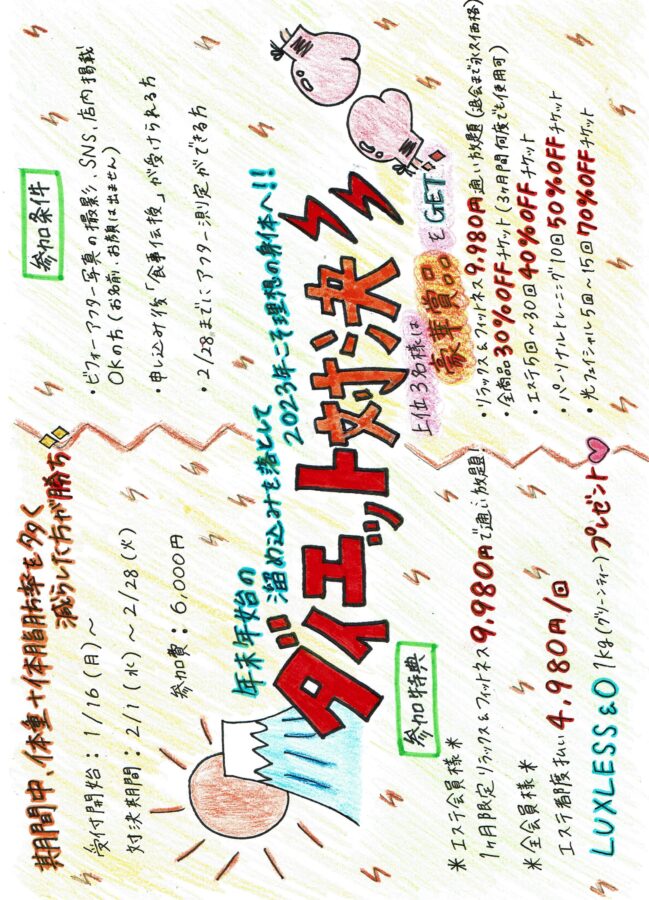 期間中、体重+体脂肪率を多く
減らした方が勝ち
受付開始：1/16(月)〜
対決期間：2/1(水)〜2/28(火)
参加費：6,000円
参加条件
・ビフォーアフター写真の撮影、SNS、店内掲載
OKの方(お名前、お顔は出ません)
・申し込み後「食事伝授」が受けられる方
・2/28までにアフター測定ができる方
年末年始の
溜め込みを落として
2023年こそ理想の身体へ!!
ダイエット対決
参加特典
＊エステ会員様＊
1ヶ月限定リラックス&フィットネス9,980円で通い放題!
＊全会員様＊
エステ都度払い4,980円/回
LUXLESS&O 1kg(グリーンティー)プレゼント
上位3名様は
豪華賞品をGET
・リラックス&フィットネス9,980円通い放題(退会まで永久価格)
・全商品30%OFFチケット(3ヶ月間何度でも使用可)
・エステ5回〜30回40%OFFチケット
・パーソナルトレーニング10回50%OFFチケット
・光フェイシャル5回〜15回70%OFFチケット